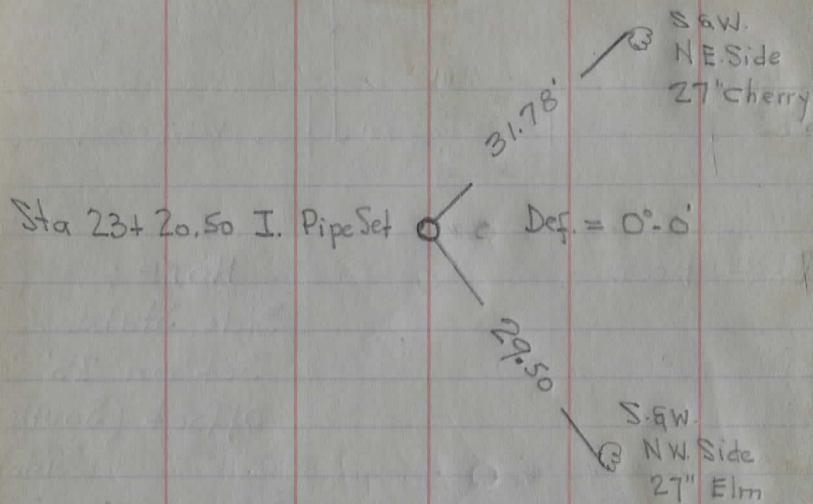 S & W.
N E. Side
27" Cherry
31.78'
Sta 23+ 20.50 I. Pipe Set Def. = 0°-0'
29.50
S. & W.
N W. Side
27" Elm